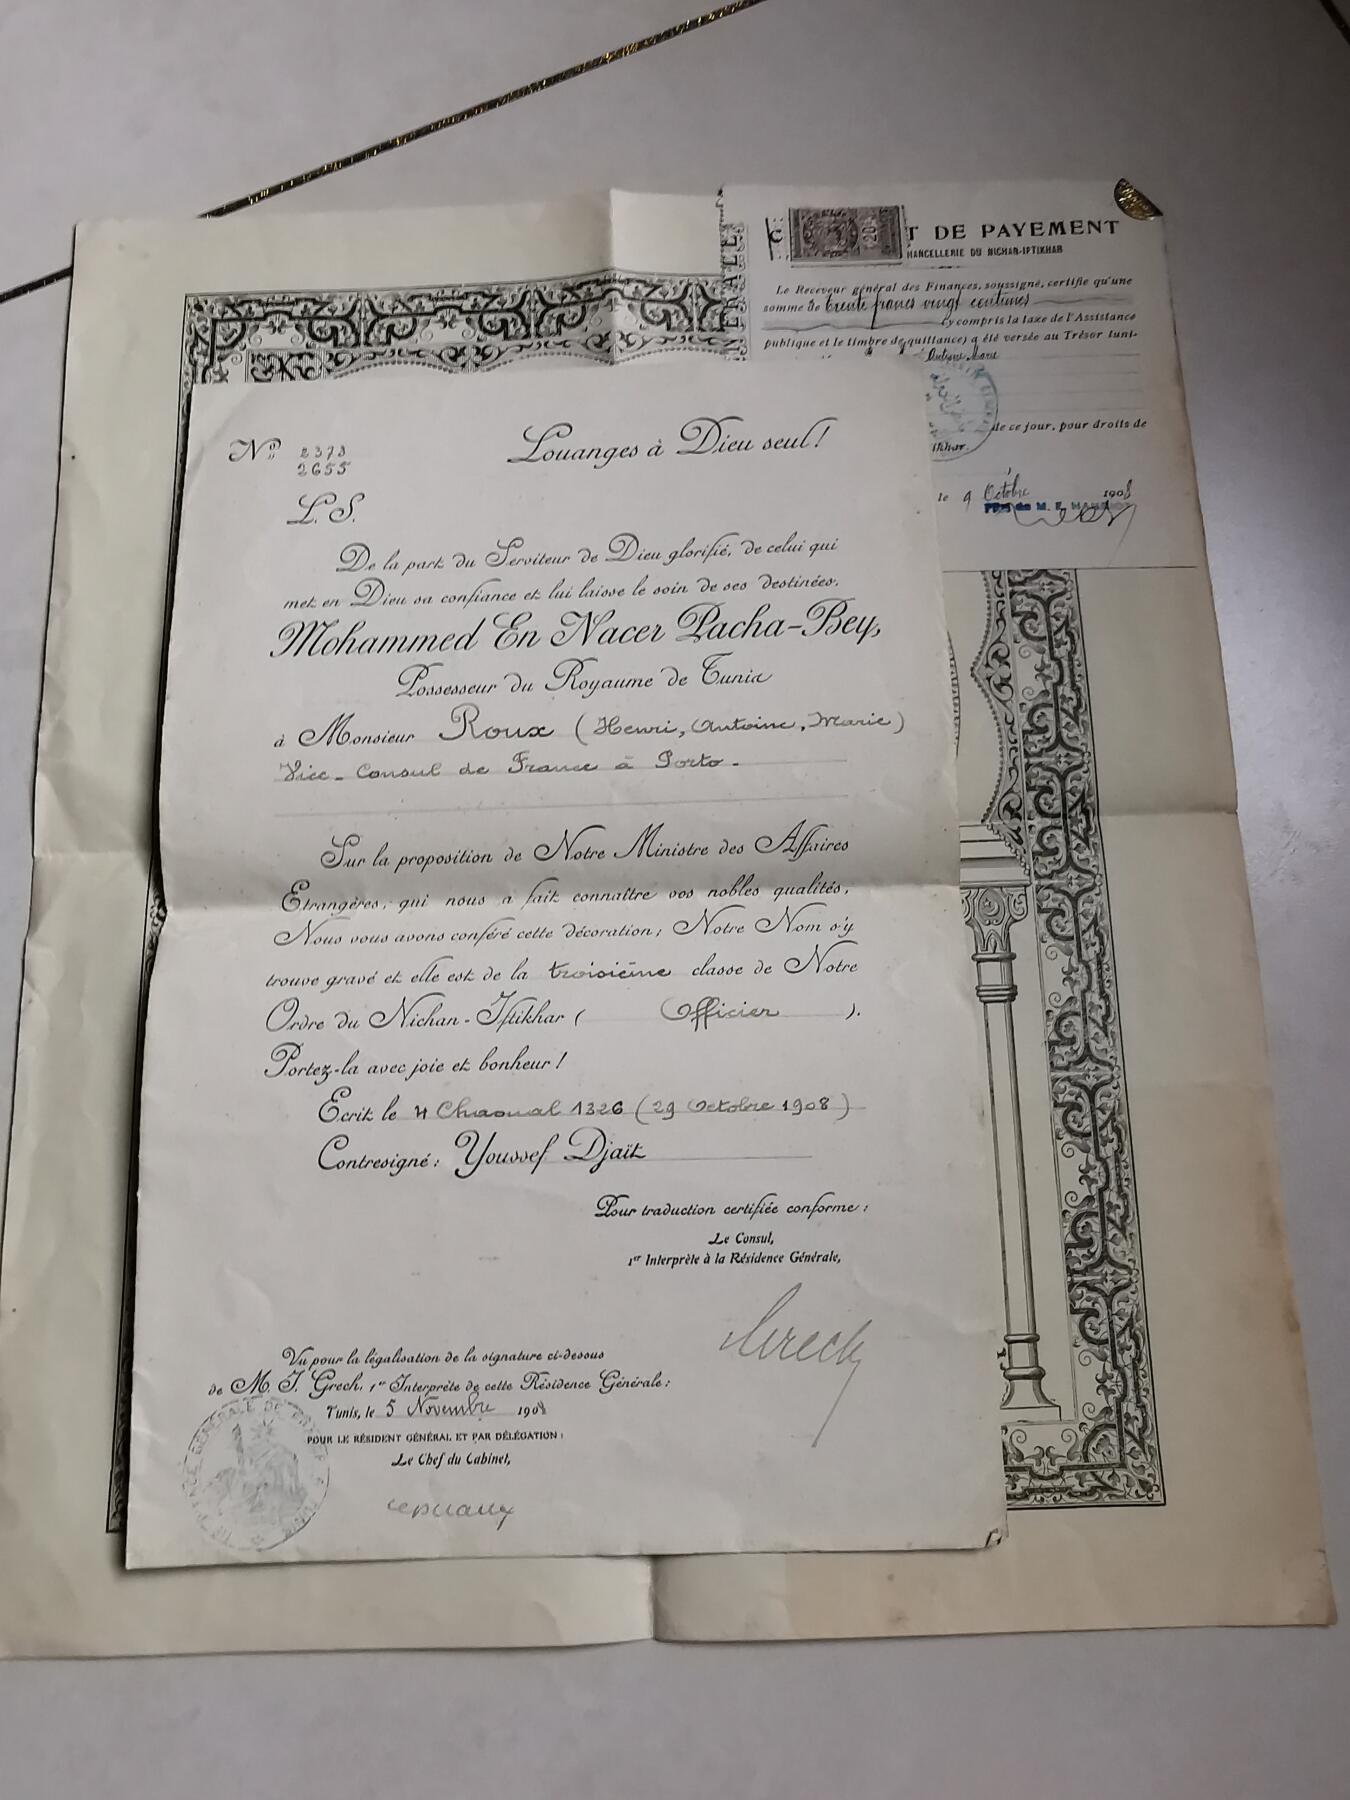 T DE PAYEMENT
HANCELLERIE DU NICHAN-IFTIKHAR
Le Receveur général des Finances, soussigné, certifie qu'une
somme de trente francs vingt centimes
(y compris la taxe de l'Assistance
publique et le timbre de quittance) a été versée au Trésor tuni-
de ce jour, pour droits de
le 9 Octobre 1908
20
Nos 2373
2655
Louanges à Dieu seul!
L. S.
De la part du Serviteur de Dieu glorifié, de celui qui
met en Dieu sa confiance et lui laisse le soin de ses destinées,
Mohammed En Nacer Pacha-Bey,
Possesseur du Royaume de Tunis
à Monsieur Roux (Henri, Antoine, Marie)
Vice-Consul de France à Porto.
Sur la proposition de Notre Ministre des Affaires
Etrangères, qui nous a fait connaître vos nobles qualités,
Nous vous avons conféré cette décoration; Notre Nom s'y
trouve gravé et elle est de la troisième classe de Notre
Ordre du Nichan-Iftikhar ( Officier ).
Portez-la avec joie et bonheur!
Ecrit le 4 Chaoual 1326 (29 Octobre 1908)
Contresigné: Youssef Djaït
Pour traduction certifiée conforme:
Le Consul,
1er Interprète à la Résidence Générale,
Grech
Vu pour la légalisation de la signature ci-dessus
de M. J. Grech, 1er Interprète de cette Résidence Générale:
Tunis, le 5 Novembre 1908
POUR LE RÉSIDENT GÉNÉRAL ET PAR DÉLÉGATION:
Le Chef du Cabinet,